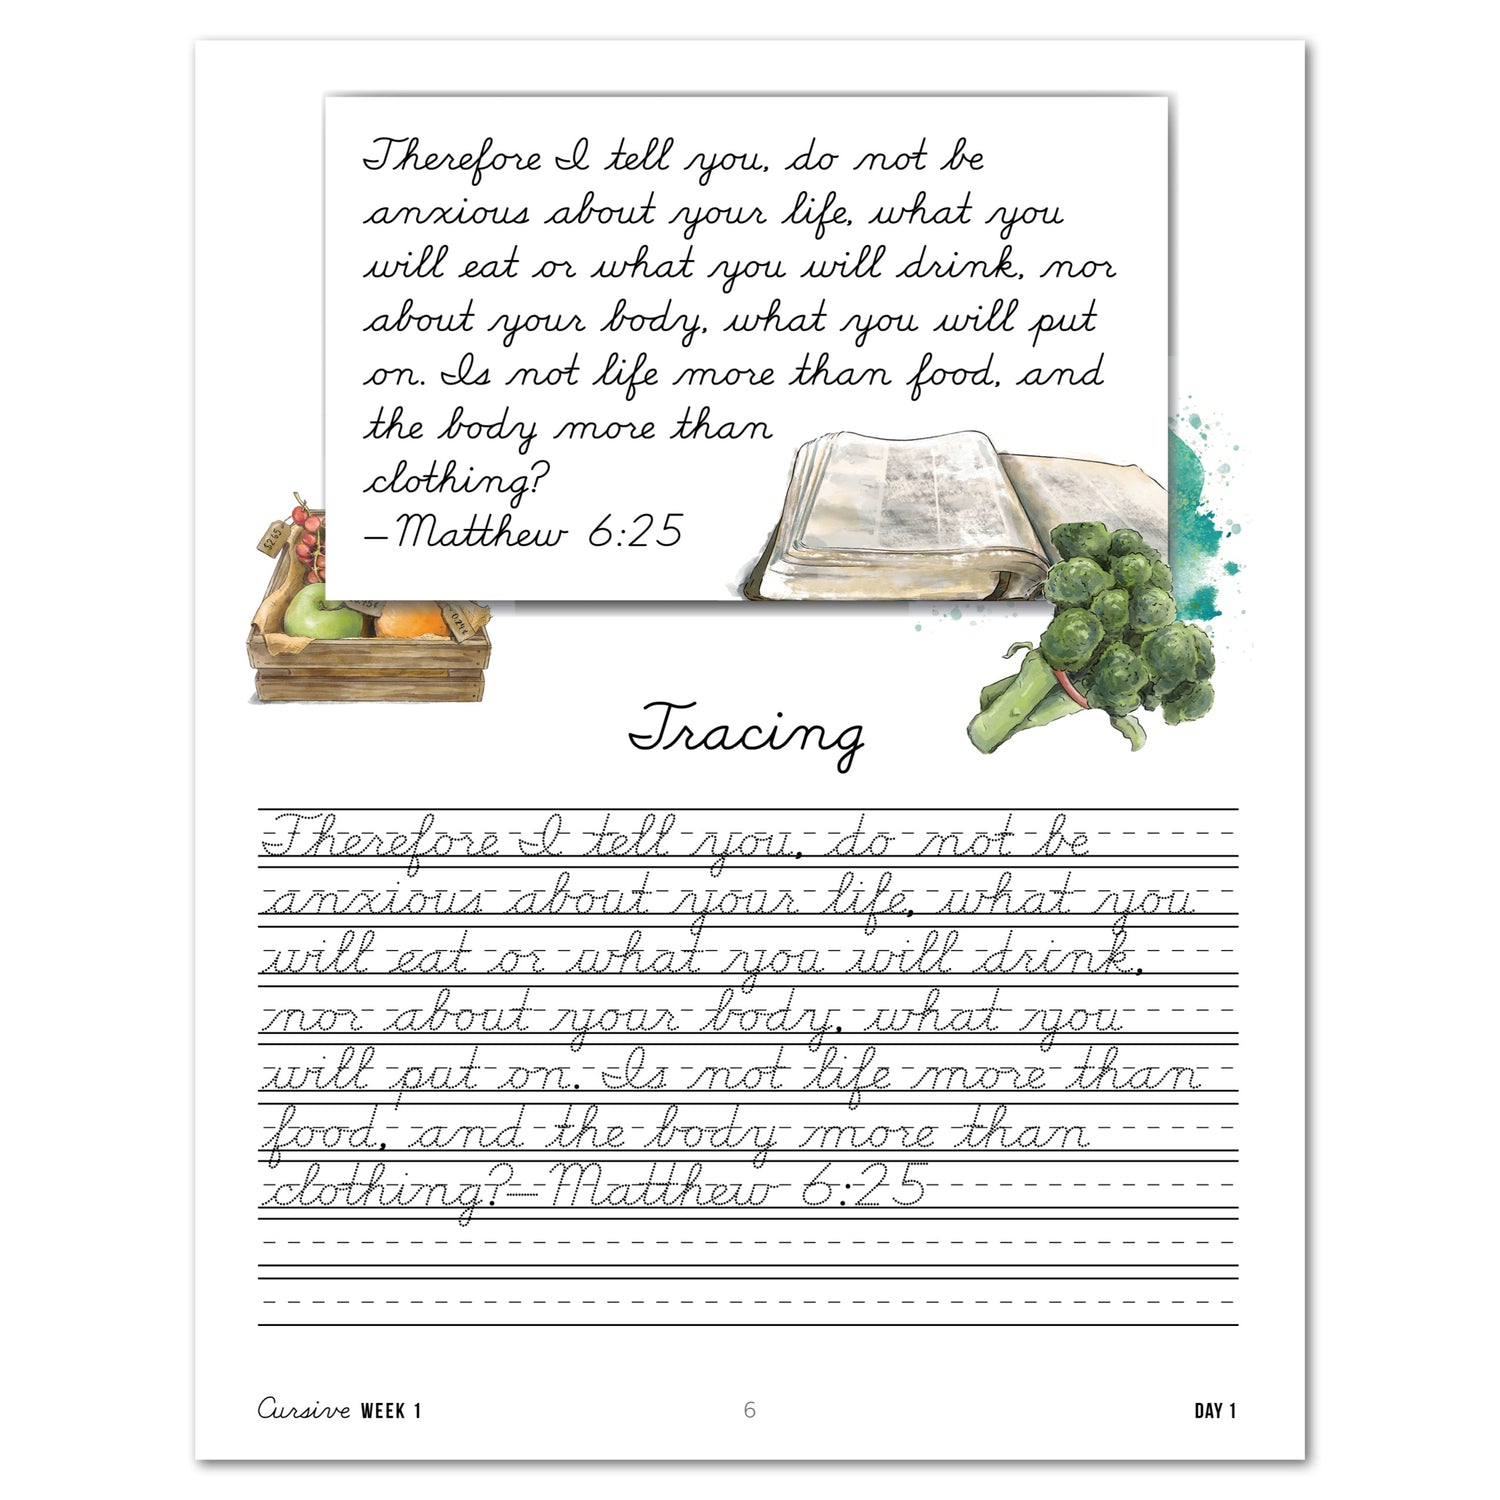 Therefore I tell you, do not be
anxious about your life, what you
will eat or what you will drink, nor
about your body, what you will put
on. Is not life more than food, and
the body more than
clothing?
–Matthew 6:25
$2.65
0.24¢
Tracing
Therefore I tell you, do not be
anxious about your life, what you
will eat or what you will drink,
nor about your body, what you
will put on. Is not life more than
food, and the body more than
clothing?–Matthew 6:25
Cursive WEEK 1 6 DAY 1